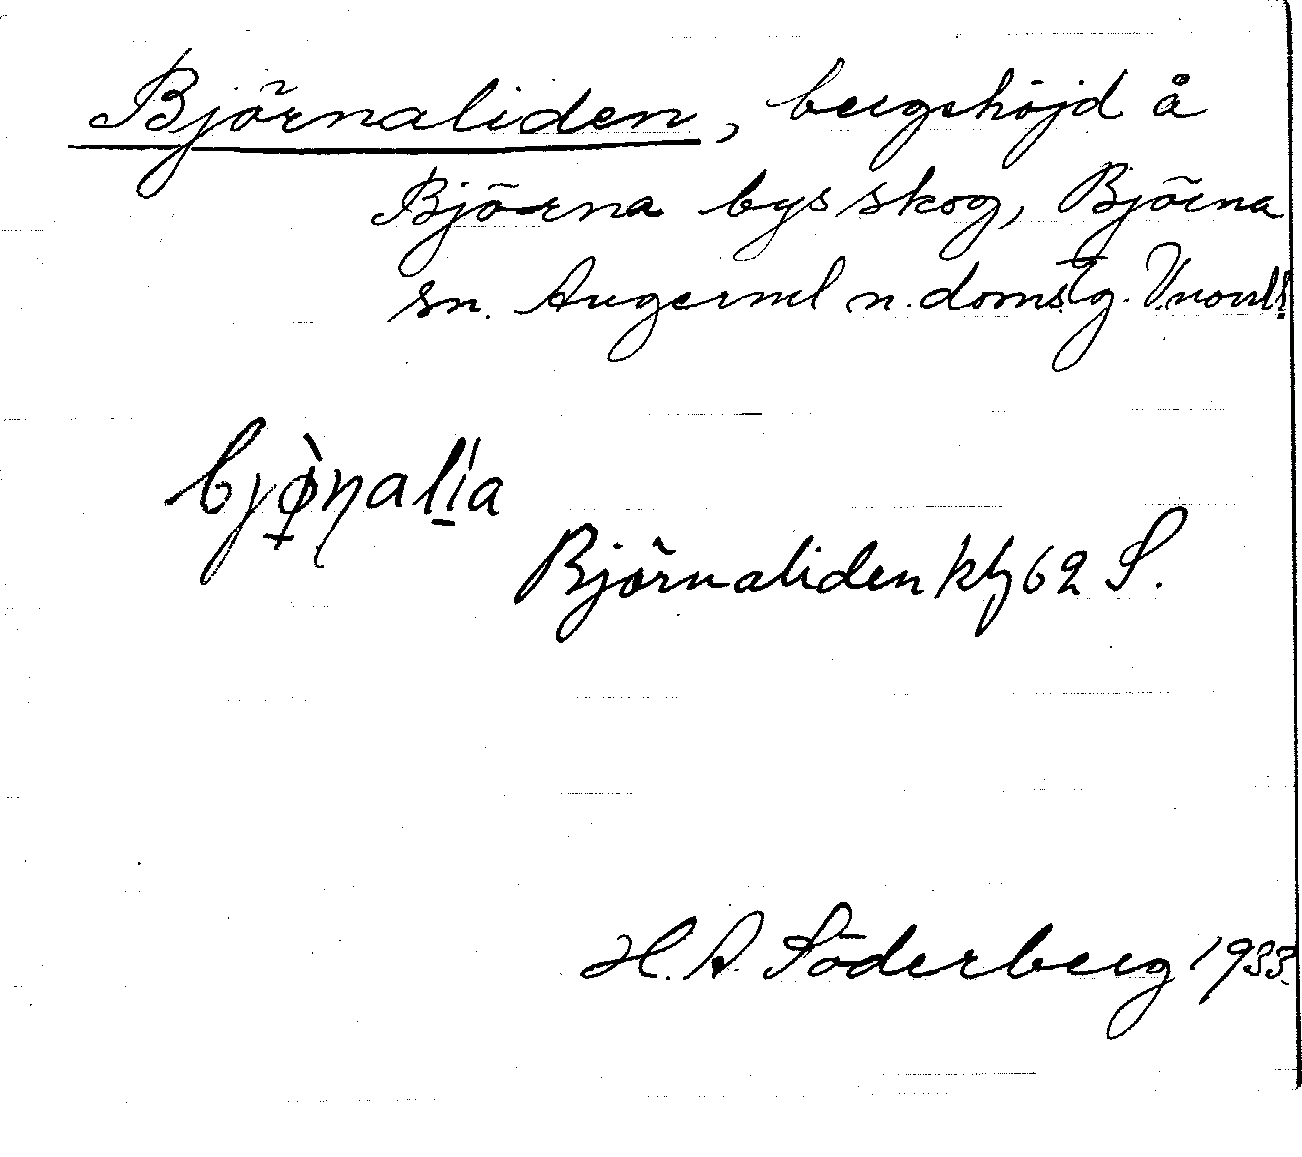 Björnaliden, bergshöjd å
Björna bys skog, Björna
sn. Ångerml n. doms.g. V.norrl.
bjø̀ṇalía
Björnaliden ktbl 62 S.
H. A. Söderberg 1933.